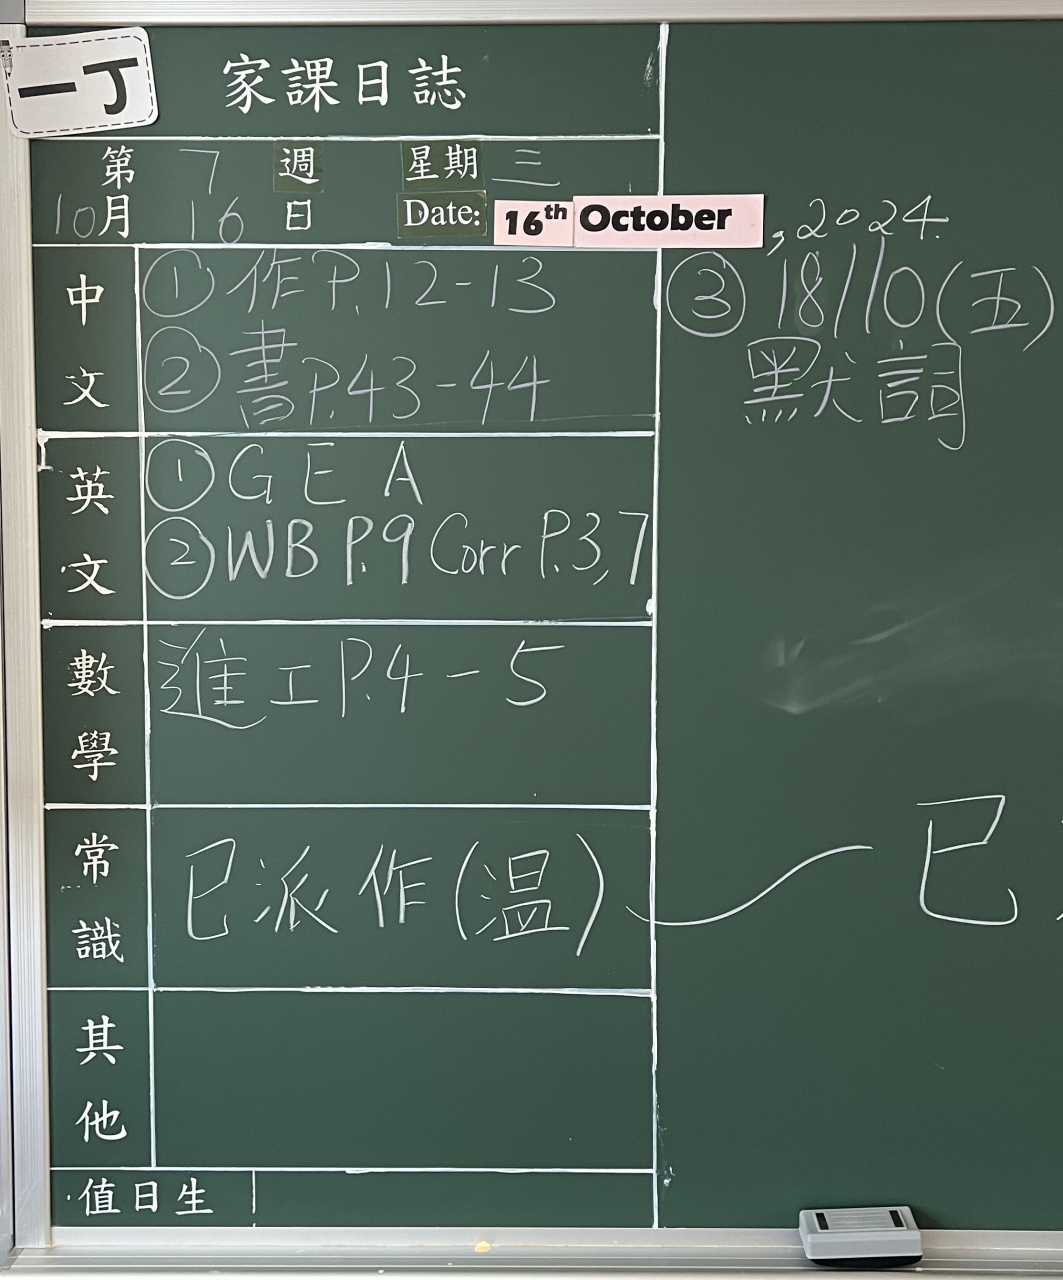 一丁
家課日誌
第 7 週 星期 三
10月 16 日 Date: 16th October , 2024.
中文
① 作P.12-13
② 書P.43-44
③ 18/10(五)
默詞
英文
① G E A
② WB P.9 Corr P.3,7
數學
進工P.4-5
常識
已派作(溫)
已
其他
值日生